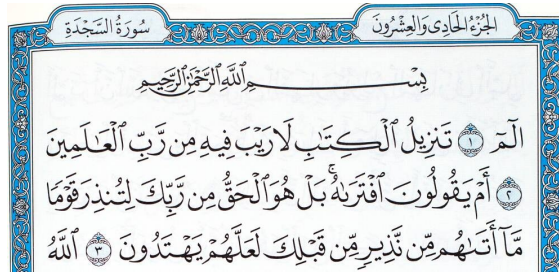 الجُزْءُ الحَادِي وَالعِشْرُونَ
سُورَةُ السَّجْدَةِ
بِسْمِ اللَّهِ الرَّحْمَٰنِ الرَّحِيمِ
الٓمٓ ١ تَنزِيلُ ٱلْكِتَٰبِ لَا رَيْبَ فِيهِ مِن رَّبِّ ٱلْعَٰلَمِينَ
٢ أَمْ يَقُولُونَ ٱفْتَرَىٰهُ ۚ بَلْ هُوَ ٱلْحَقُّ مِن رَّبِّكَ لِتُنذِرَ قَوْمًا
مَّآ أَتَىٰهُم مِّن نَّذِيرٍ مِّن قَبْلِكَ لَعَلَّهُمْ يَهْتَدُونَ ٣ ٱللَّهُ